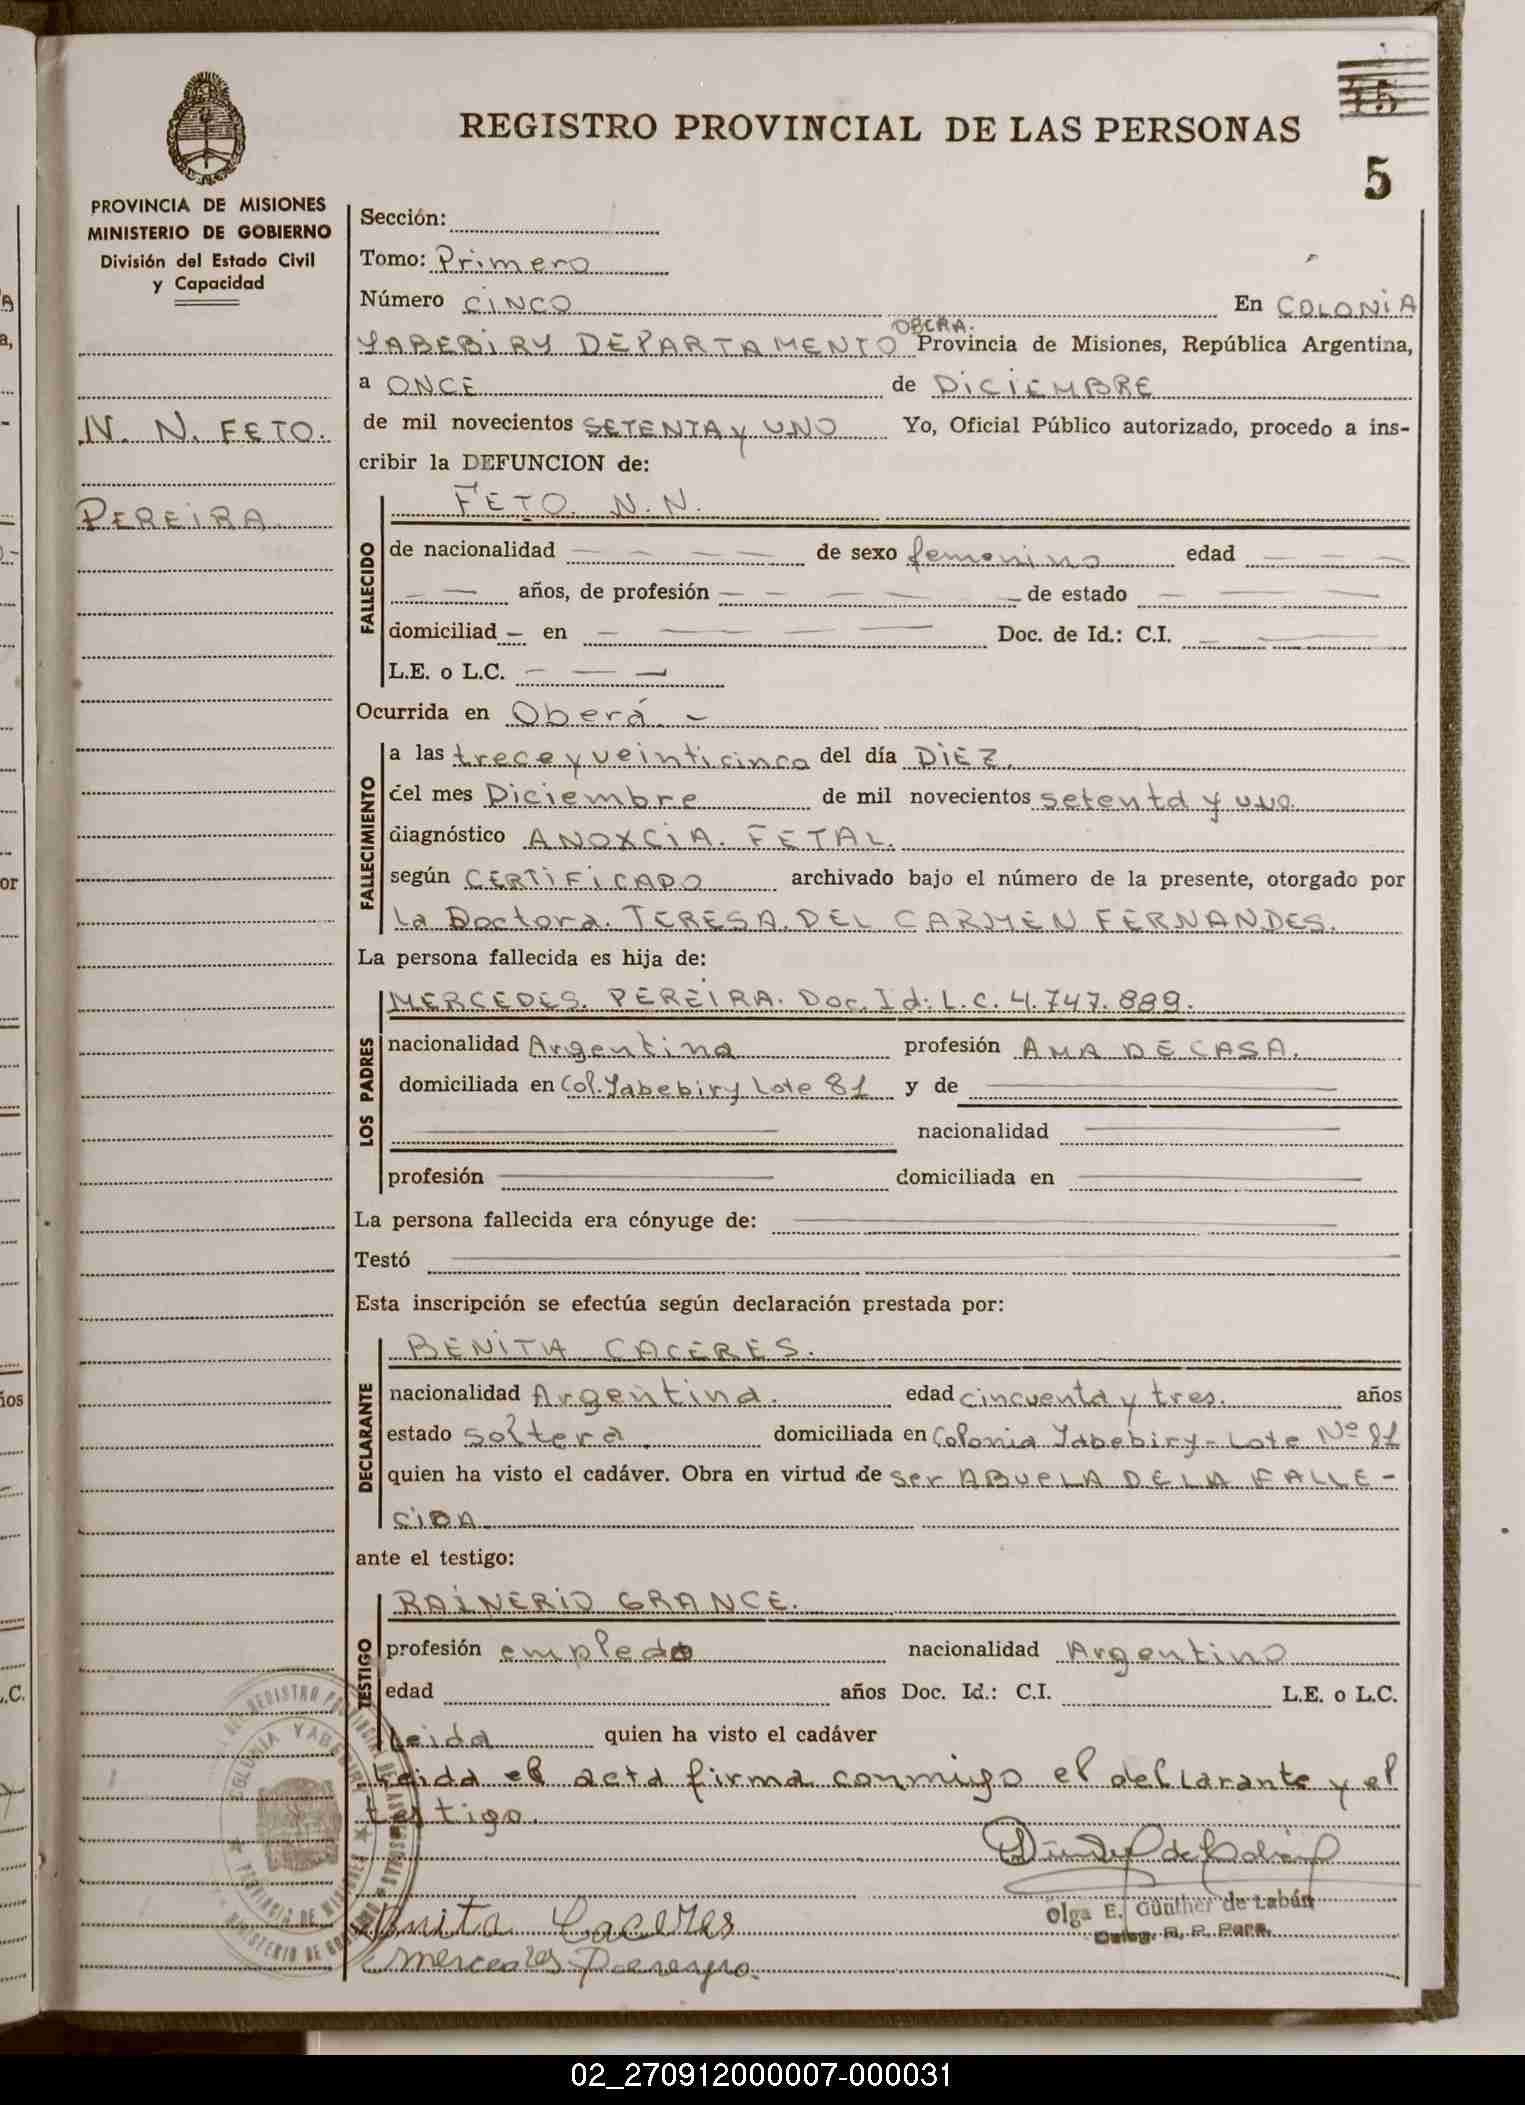 REGISTRO PROVINCIAL DE LAS PERSONAS
45
5
PROVINCIA DE MISIONES
MINISTERIO DE GOBIERNO
División del Estado Civil
y Capacidad
N. N. FETO.
PEREIRA
Sección:
Tomo: Primero
Número CINCO En COLONIA
OBERA.
YABEBIRY DEPARTAMENTO Provincia de Misiones, República Argentina,
a ONCE de DICIEMBRE
de mil novecientos SETENTA y UNO Yo, Oficial Público autorizado, procedo a ins-
cribir la DEFUNCION de:
FALLECIDO
FETO N.N.
de nacionalidad — — — — de sexo femenino edad — — —
— — años, de profesión — — — — — de estado — — —
domiciliad — en — — — — Doc. de Id.: C.I. — —
L.E. o L.C. — — —
Ocurrida en Oberá. -
FALLECIMIENTO
a las trece y veinticinco del día DIEZ.
del mes Diciembre de mil novecientos setenta y uno
diagnóstico ANOXCIA. FETAL.
según CERTIFICADO archivado bajo el número de la presente, otorgado por
la Doctora. TERESA. DEL CARMEN FERNANDES.
La persona fallecida es hija de:
LOS PADRES
MERCEDES. PEREIRA. Doc. Id: L.C. 4.747.889.
nacionalidad Argentina profesión AMA DE CASA.
domiciliada en Col. Yabebiry Lote 81 y de
nacionalidad
profesión domiciliada en
La persona fallecida era cónyuge de:
Testó
Esta inscripción se efectúa según declaración prestada por:
DECLARANTE
BENITA CACERES.
nacionalidad Argentina. edad cincuenta y tres. años
estado soltera. domiciliada en Colonia Yabebiry - Lote Nº 81
quien ha visto el cadáver. Obra en virtud de ser ABUELA DE LA FALLE-
CIDA
ante el testigo:
TESTIGO
RAINERIO GRANCE.
profesión empledo nacionalidad Argentino
edad años Doc. Id.: C.I. L.E. o L.C.
Leida quien ha visto el cadáver
Leida el acta firma conmigo el declarante y el
testigo.
Olga E. Günther de Labán
Deleg. R. P. Pers.
Bnita Caceres
COLONIA YABEBIRY
PROVINCIA DE MISIONES
MINISTERIO DE GOBIERNO
02_270912000007-000031